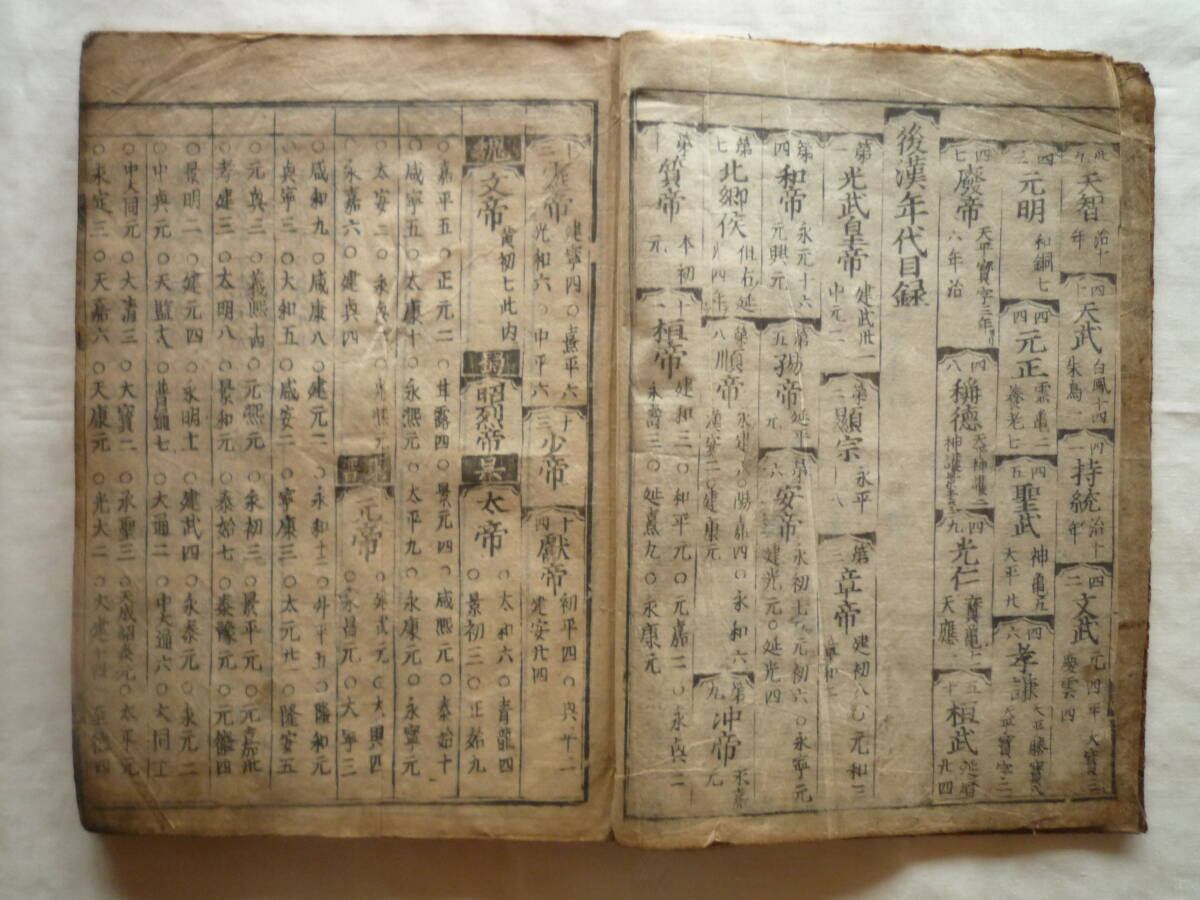 卅九 天智 治十年 四十 天武 白鳳十四 朱鳥一 四一 持統 治十年 四二 文武 元四年 大寶三 慶雲四
四三 元明 和銅七 四四 元正 霊亀二 養老七 四五 聖武 神亀五 天平廿 四六 孝謙
四七 廢帝 天平寶字三年 六年治 四八 稱徳 四九 光仁 寳亀十一 天應 五十 桓武 延暦廿四
後漢年代目録
第一 光武皇帝 建武卅一 中元二 第二 顯宗 永平十八 第三 章帝 建初八 〇元和三 章和二
第四 和帝 永元十六 元興元 第五 殤帝 延平元 第六 安帝 永初七 〇元初六 〇永寧元 建光元〇延光四
第七 北郷侯 第八 順帝 永建六〇陽嘉四〇永和六 漢安二〇建康元 第九 冲帝 永嘉元
第十 質帝 本初元 十一 桓帝 建和三〇和平元〇元嘉二〇永興二 永壽三〇延熹九〇永康元
十二 霊帝 建寧四〇熹平六 光和六〇中平六 十三 少帝 十四 獻帝 初平四〇興平二 建安廿四
魏 文帝 黄初七此内 蜀 昭烈帝 呉 太帝 〇太和六〇青龍四 〇景初三〇正始九
〇嘉平五〇正元二〇甘露四〇景元四〇咸熙元〇泰始十
〇咸寧五〇太康十〇永熙元〇太平九〇永康元〇永寧元
〇太安二〇永興 〇光熙元
永嘉六〇建興四 元帝 〇永昌元〇大寧三
〇咸和九〇咸康八〇建元二〇永和十二〇升平五〇隆和元
〇興寧三〇大和五〇咸安二〇寧康三〇太元廿一〇隆安五
〇元興三〇義熙十四〇元熙元〇永初三〇景平元〇元嘉卅
〇孝建三〇大明八〇景和元〇泰始七〇泰豫元〇元徽四
〇景明二〇建元四〇永明十一〇建武四〇永泰元〇永元二
〇中興元〇天監十八〇普通七〇大通二〇中大通六〇大同十一
〇中大同元〇大清三〇大寶二〇承聖三〇天成紹泰元〇太平元
〇永定三〇天嘉六〇天康元〇光大二〇大建十四〇至徳四